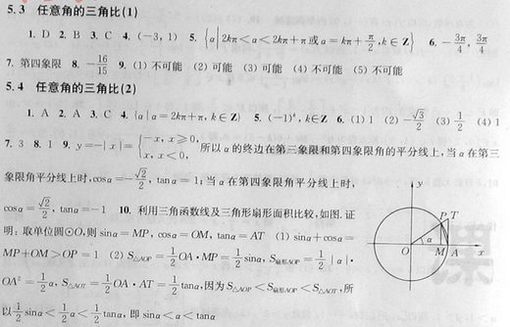 5.3 任意角的三角比(1)
1. D 2. B 3. C 4. (−3, 1) 5. {α|2kπ<α<2kπ+π或α=kπ+π/2,k∈Z} 6. −3π/4, 3π/4
7. 第四象限 8. −16/15 9. (1) 不可能 (2) 可能 (3) 可能 (4) 不可能 (5) 不可能
5.4 任意角的三角比(2)
1. A 2. A 3. C 4. {α|α=2kπ+π, k∈Z} 5. (−1)ᵏ, k∈Z 6. (1) 1 (2) −√3/2 (3) 1/2 (4) 1
7. 3 8. 1 9. y=−|x|={−x, x≥0, x, x<0, 所以α的终边在第三象限和第四象限角的平分线上,当α在第三
象限角平分线上时,cosα=−√2/2, tanα=1;当α在第四象限角平分线上时,
cosα=√2/2, tanα=−1 10. 利用三角函数线及三角形扇形面积比较,如图.证
明:取单位圆⊙O,则sinα=MP, cosα=OM, tanα=AT (1) sinα+cosα=
MP+OM>OP=1 (2) S△AOP=1/2OA·MP=1/2sinα, S扇形AOP=1/2|α|·
OA²=1/2α, S△AOT=1/2OA·AT=1/2tanα,因为S△AOP<S扇形AOP<S△AOT,所
以1/2sinα<1/2α<1/2tanα,即sinα<α<tanα
y
P T
α
O M A x